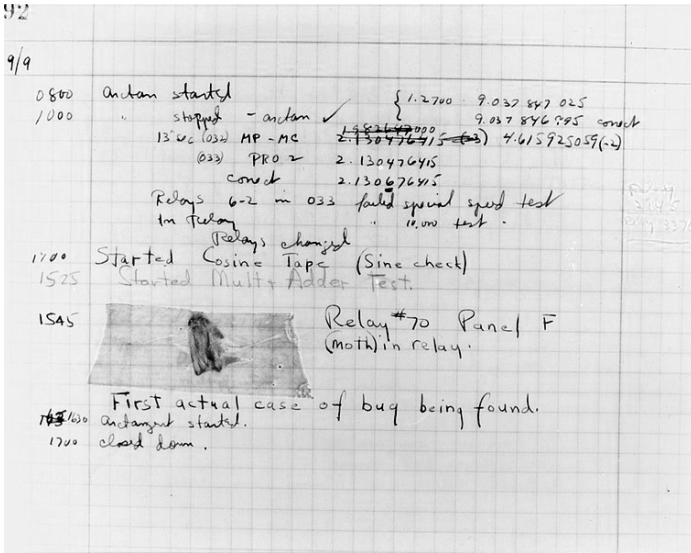 92
9/9
0800 arctan started { 1.2700 9.037 847 025
1000 " stopped - arctan ✓ 9.037 846 995 correct
13"uc (032) MP-MC 1.982647000 2.130476415 (-3) 4.615925059(-2)
(033) PRO 2 2.130476415
correct 2.130676415
Relays 6-2 in 033 failed special speed test
In Relay " 10,000 test .
Relays changed
1700 Started Cosine Tape (Sine check)
1525 Started Mult + Adder Test.
1545 Relay #70 Panel F
(moth) in relay.
First actual case of bug being found.
1630 arctangent started.
1700 closed down.